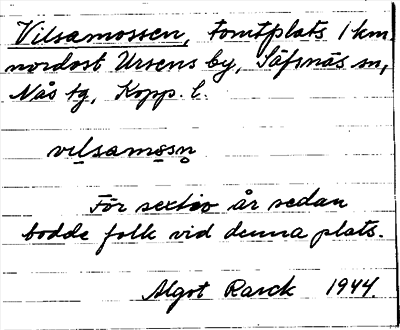 Vilsamossen, tomtplats 1 km
nordost Ursens by, Säfsnäs sn,
Nås tg, Kopp. l.
vilsamosn̥
För sextio år sedan
bodde folk vid denna plats.
Algot Rarck 1944.